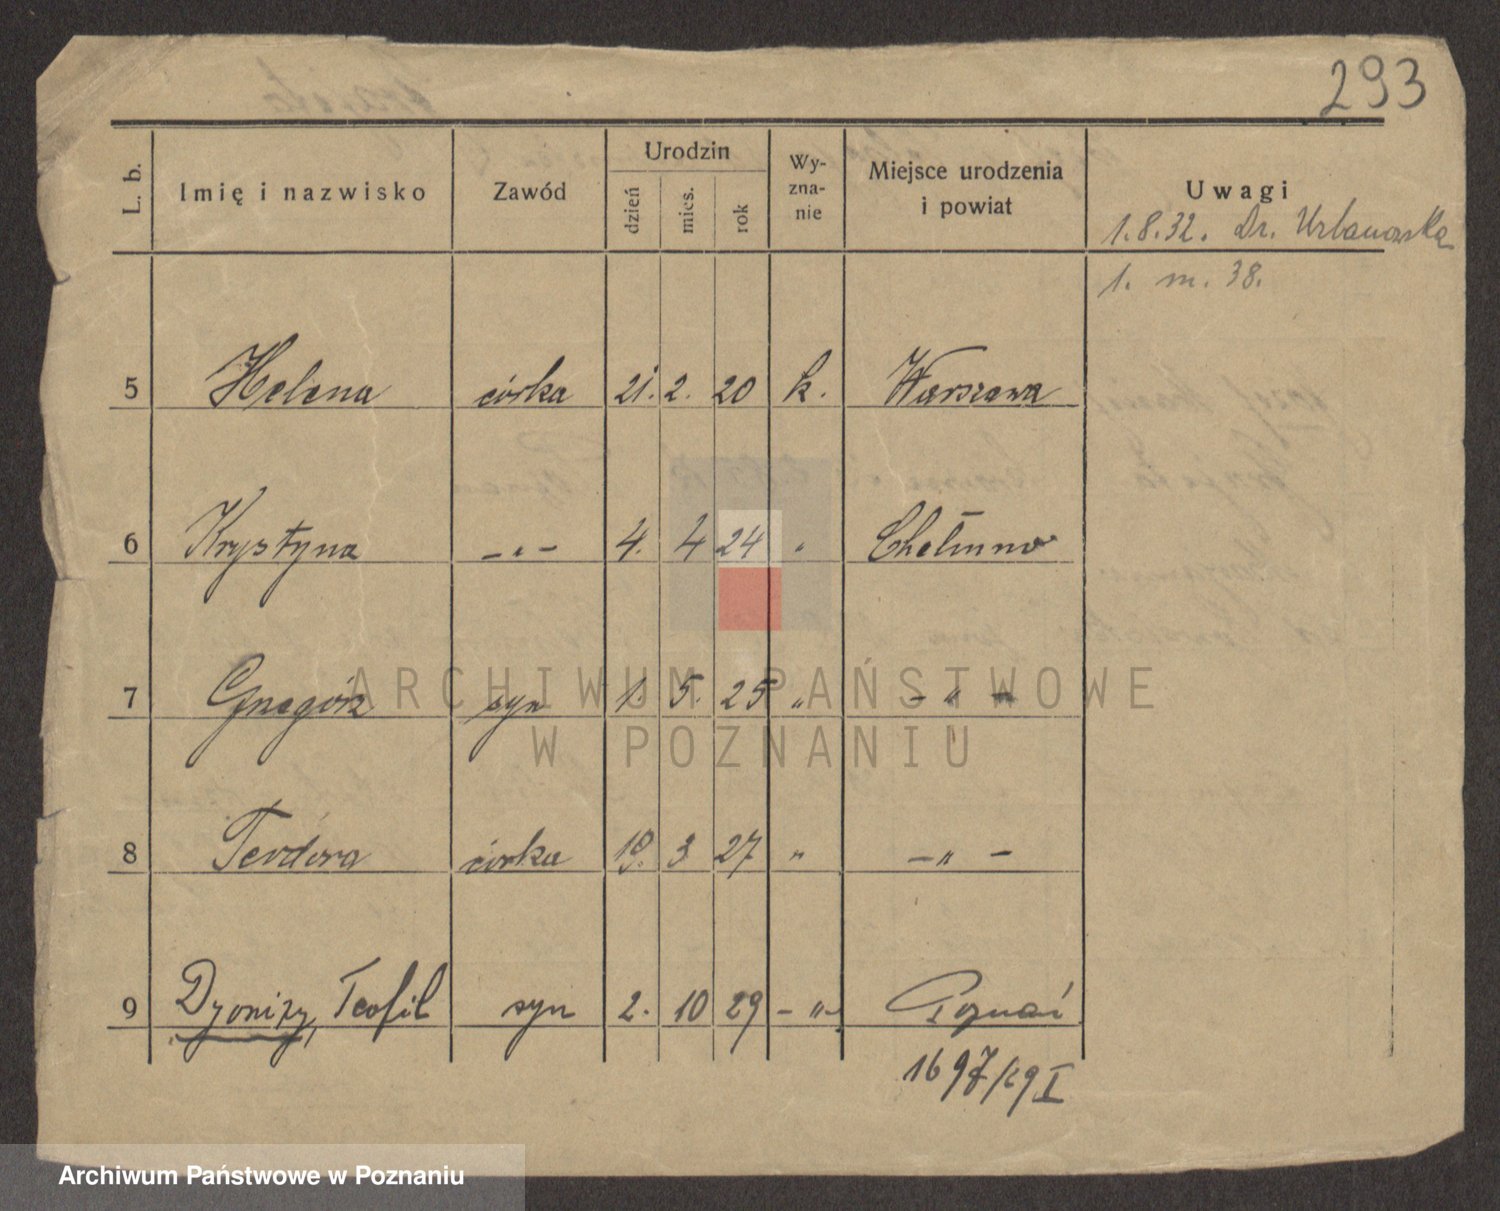 293
L. b. Imię i nazwisko Zawód Urodzin dzień mies. rok Wy-zna-nie Miejsce urodzenia i powiat Uwagi
1.8.32. Dr. Urbanowska
1. m. 38.
5 Helena córka 21. 2. 20 k. Warszawa
6 Krystyna -„- 4. 4 24 „ Chełmno
7 Grzegórz syn 1. 5. 25 „ -„-
8 Teodora córka 19. 3 27 „ -„-
9 Dyonizy, Teofil syn 2. 10 29 -„- Poznań
1697/29 I
ARCHIWUM PAŃSTWOWE
W POZNANIU
Archiwum Państwowe w Poznaniu